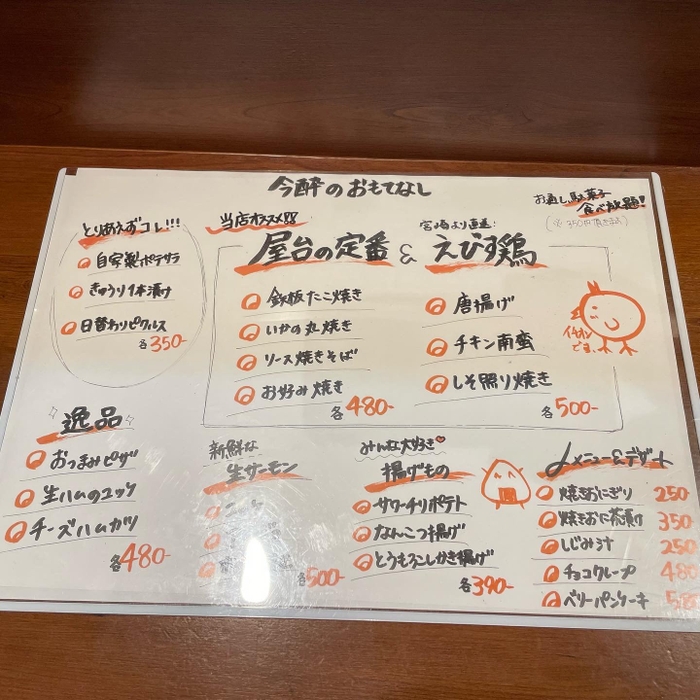 今酔のおもてなし
お通し駄菓子
食べ放題!!
とりあえずコレ!!!
自家製ポテサラ
きゅうり1本漬け
日替わりピクルス
各350-
当店オススメ
屋台の定番 &
鉄板たこ焼き
いかの丸焼き
ソース焼きそば
お好み焼き
各480-
宮崎より直送!
えびす鶏
唐揚げ
チキン南蛮
しそ照り焼き
各500-
イチオシ
逸品
おつまみピザ
生ハムのユッケ
チーズハムカツ
各480-
新鮮な
生サーモン
各500-
みんな大好き
揚げもの
サワーチリポテト
なんこつ揚げ
とうもろこしかき揚げ
各390-
〆メニュー&デザート
焼きおにぎり 250
焼きおに茶漬け 350
しじみ汁 250
チョコクレープ 480
ベリーパンケーキ